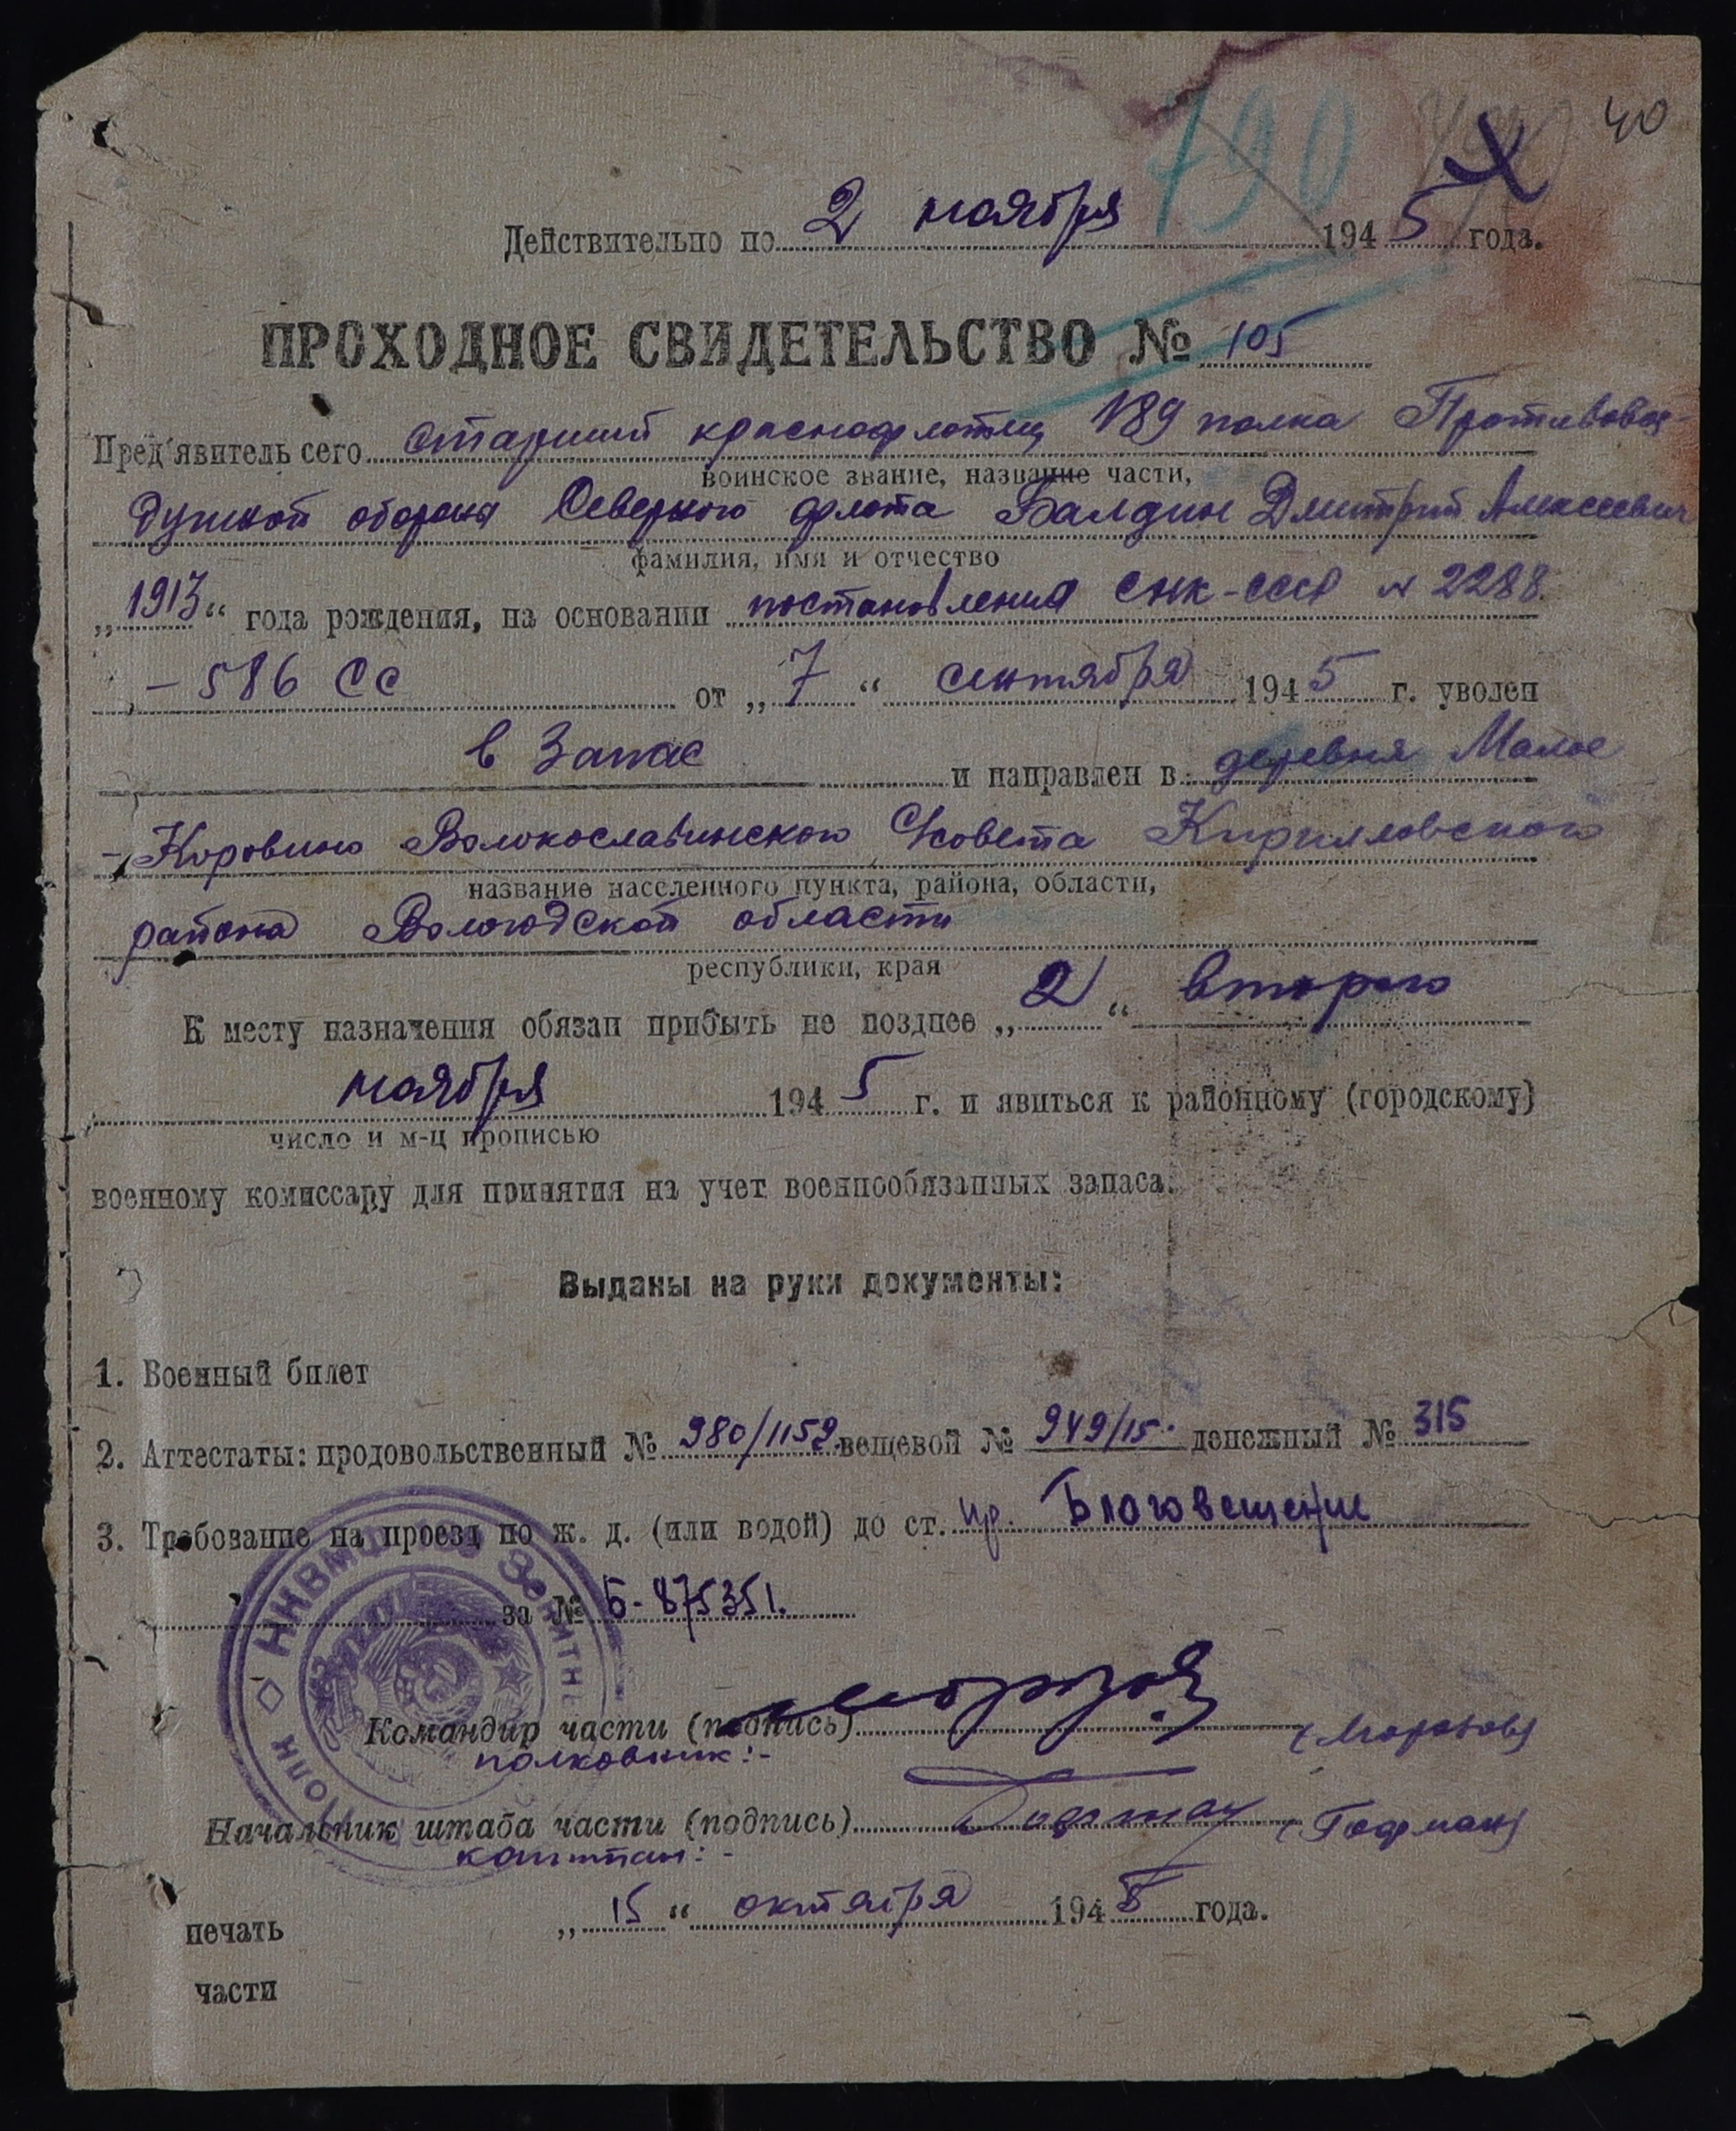 40
790
Действительно по 2 ноября 1945 года.
ПРОХОДНОЕ СВИДЕТЕЛЬСТВО № 105
Пред'явитель сего старший краснофлотец 189 полка Противовоз-
воинское звание, название части,
душной обороны Северного флота Балдин Дмитрий Алексеевич
фамилия, имя и отчество
„1913“ года рождения, на основании постановления СНК-СССР № 2288.
- 586 СС от „7“ сентября 1945 г. уволен
в запас и направлен в деревня Малое
- Коровино Волокославинского Совета Кирилловского
название населенного пункта, района, области,
района Вологодской области
республики, края
К месту назначения обязан прибыть не позднее „2“ второго
ноября 1945 г. и явиться к районному (городскому)
число и м-ц прописью
военному комиссару для принятия на учет военнообязанных запаса.
Выданы на руки документы:
1. Военный билет
2. Аттестаты: продовольственный № 980/1159. вещевой № 949/15. денежный № 315
3. Требование на проезд по ж. д. (или водой) до ст. пр. Благовещение
за № Б-875351.
Командир части (подпись) Морозов (Морозов)
полковник:-
Начальник штаба части (подпись) Гофман (Гофман)
капитан:-
„15“ октября 1945 года.
печать
части